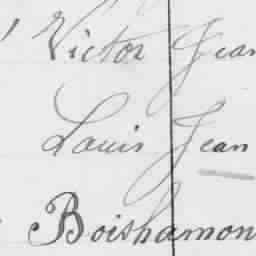 Victor Jean
Louis Jean
Boishamon